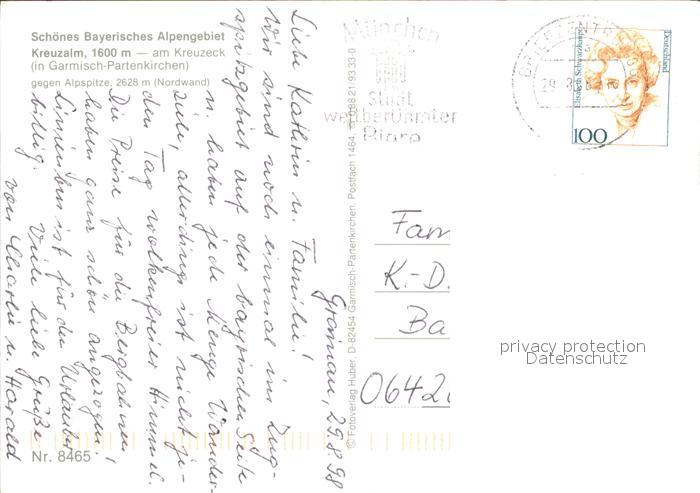 Schönes Bayerisches Alpengebiet
Kreuzalm, 1600 m — am Kreuzeck
(in Garmisch-Partenkirchen)
gegen Alpspitze, 2628 m (Nordwand)
Grainau, 29.8.98
Liebe Kathrin u. Familie!
Wir sind noch einmal im Zug-
spitzgebiet auf der bayrischen Seite
u. haben jede Menge Wander-
ziele, allerdings ist nicht je-
den Tag wolkenfreier Himmel.
Die Preise für die Bergbahnen
haben ganz schön angezogen,
Linienbus ist für den Urlauber
billig. Viele liebe Grüße
von Charlie u. Harald
Nr. 8465
© Fotoverlag Huber, D-82454 Garmisch-Partenkirchen, Postfach 1464,
München
Stadt
weltberühmter
Biere
BRIEFZENTRUM
29.8.
Elisabeth Schwarzhaupt
Deutschland
100
Fam
K.-D.
Ba
0642
privacy protection
Datenschutz